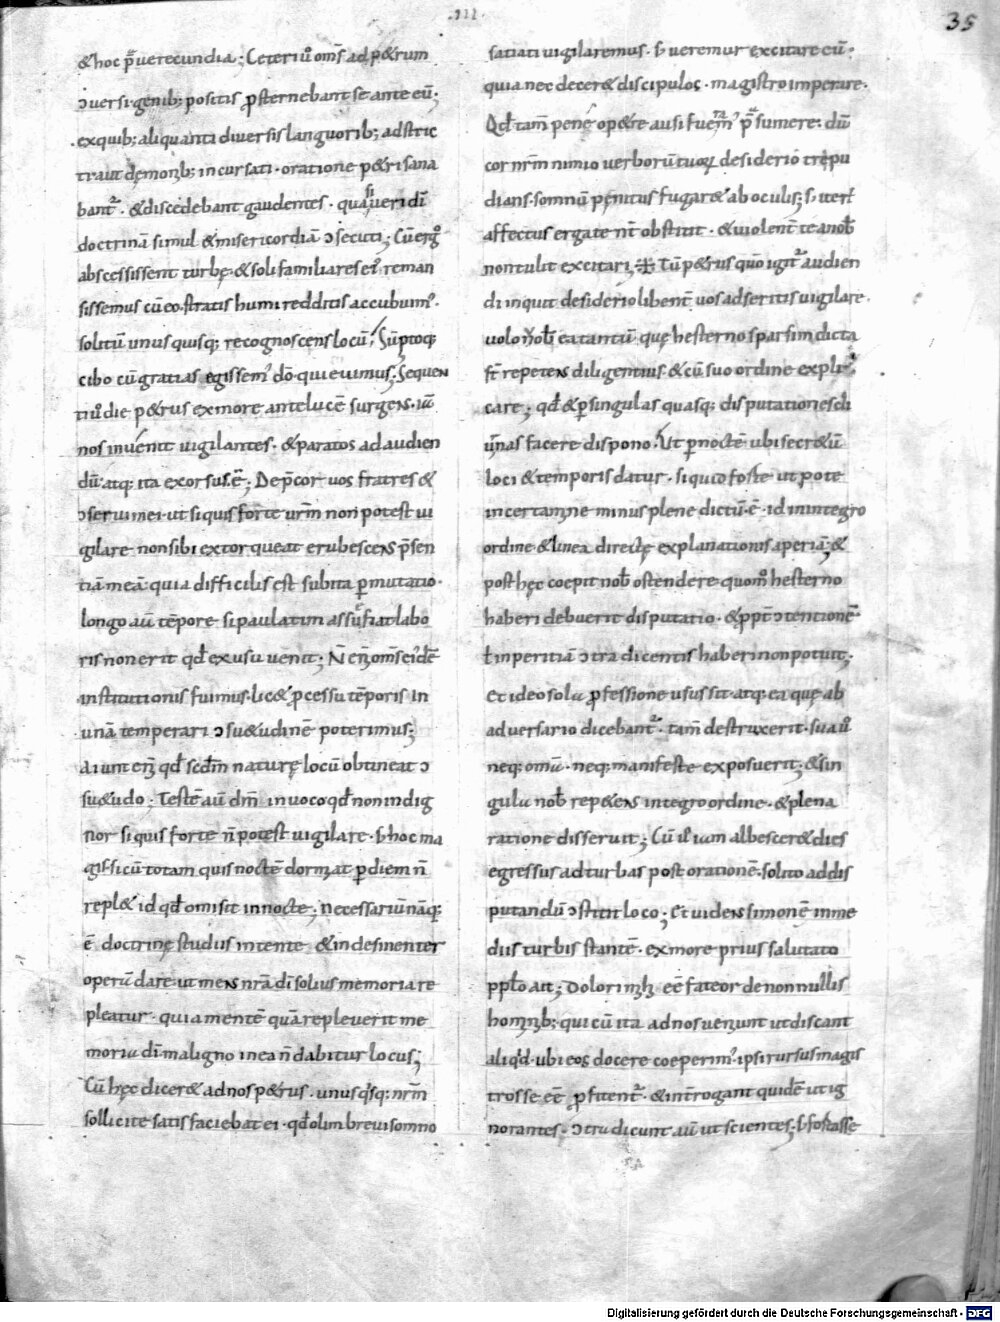 .III.
35
&hoc p̄ uerecundia; Ceteri ů om̄s ad p&rum
ɔuersi genib; positis ꝓsternebant se ante eū;
ex quib; aliquanta diuersis languorib; adstric
ti aut dęmonib; incursati · oratione p&ri sana
bant᷑ · & discedebant gaudentes · quasi ueri dī
doctrinā simul & misericordiā ɔsecuti; Cū ergo
abscessissent turbę · & soli familiares ei᷑ reman
sissemus cū eo · stratis humi redditis accubuim᷑ ·
solitū unusquisq; recognoscens locū; Sūptoq;
cibo cū gratias egissem᷑ dō · quieuimus; Sequen
ti ů die p&rus ex more ante lucē surgens · iā
nos inuenit uigilantes · & paratos ad audien
dū · atq; ita exorsus · ē; Dep̄cor uos fratres &
ɔserui mei · ut si quis forte ur̄m non potest ui
gilare · non sibi extorqueat erubescens p̄sen
tiā meā · quia difficilis est subita ꝑmutatio ·
longo aū tēpore · si paulatim assuefiat labo
ris non erit qđ ex usu uenit; N̄ eni om̄s ei᷑dē
institutionis fuimus · lic& ꝓcessu tēporis in
unā temperari ɔsu&udinē poterimus;
Aiunt eni qđ scđm naturę locū obtineat ɔ
su&udo; Testē aū dm̄ inuoco qđ non indig
nor si quis forte n̄ potest uigilare · s; hoc ma
gis · si cū totam quis noctē dormiat ꝑ diem n̄
repl& id qđ omisit in nocte; necessariū nāq;
ē doctrinę studiis intente · & indesinenter
operā dare · ut mens nr̄a dī solius memoria re
pleatur · quia mentē quā repleuerit me
moria dī · maligno in ea n̄ dabitur locus;
Cū hęc dicer& ad nos p&rus · unusq́sq; nr̄m
sollicite satisfaciebat ei · qđ olim breui somno
satiati uigilaremus · s; ueremur excitare eū ·
quia nec decer& discipulos · magistro imperare ·
Qđ tam̄ pene o p&re ausi fueram᷑ p̄sumere · dū
cor nr̄m nimio uerborū tuorꝝ desiderio trepu
dians · somnū penitus fugar& ab oculis; s; iter̄
affectus erga te nr̄ obstitit · & uiolent᷑ te a nob̄
non tulit excitari; Tū p&rus quō igit᷑ audien
di inquit desiderio libent᷑ uos adseritis uigilare ·
uolo uob̄ ea tantū · quę hesterno sparsim dicta
s̄t repetens diligentius · & cū suo ordine expli
care; qđ & ꝑ singulas quasq; disputationes di
urnas facere dispono · Ut ꝑ noctē ubi secr&ū
loci & temporis datur · si quid foste utpote
in certamine minus plene dictū · ē · id in integro
ordine · & linea directę explanationis aperiā; &
post hęc coepit nob̄ ostendere quom᷑ hesterno
haberi debuerit disputatio · & ꝓpt̄ ɔtentionē
ł inperitiā ɔtradicentis haberi non potuit;
Et ideo sola ꝓfessione usus sit · atq; ea quę ab
aduersario dicebant᷑ · tam̄ destruxerit · sua ů
neq; omīa · neq; manifeste exposuerit; & sin
gula nob̄ rep&ens integro ordine · & plena
ratione disseruit; Cū u᷑ iam albescer& dies
egressus ad turbas post orationē solito addis
putandū ɔstitit loco; Et uidens simonē in me
diis turbis stantē · ex more prius salutato
pplo ait; Dolori mihi eē fateor de nonnullis
hominib; qui cū ita ad nos ueniunt ut discant
aliq́d · ubi eos docere coeperim᷑ · ipsi rursus magis
tros se eē ꝓfitent᷑ · & int̄rogant quidē ut ig
norantes · ɔtradicunt aū ut scientes; S; fostasse
Digitalisierung gefördert durch die Deutsche Forschungsgemeinschaft - DFG